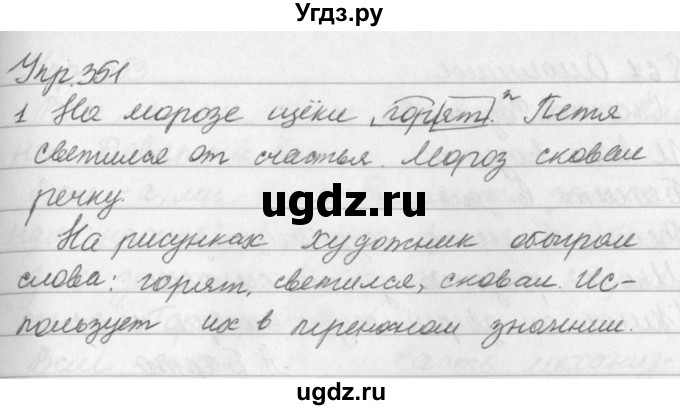 Угдз.ру
Упр. 351
1 На морозе щёки горят. ² Петя
светился от счастья. Мороз сковал
речку.
ugdz.ru
На рисунках художник обыграл
слова: горят, светился, сковал. Ис-
пользует их в переносном значении.
ugdz.ru